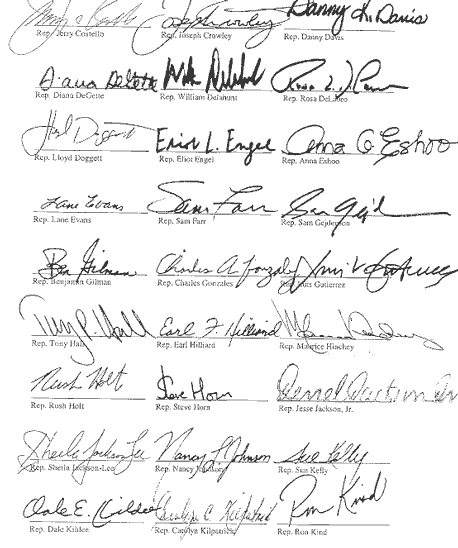 Danny K. Davis
Rep. Jerry Costello Rep. Joseph Crowley Rep. Danny Davis
Diana DeGette
Rep. Diana DeGette Rep. William Delahunt Rep. Rosa DeLauro
Eliot L. Engel Anna G Eshoo
Rep. Lloyd Doggett Rep. Eliot Engel Rep. Anna Eshoo
Lane Evans Sam Farr Sam Gejd
Rep. Lane Evans Rep. Sam Farr Rep. Sam Gejdenson
Ben Gilman Charles A. Gonzalez
Rep. Benjamin Gilman Rep. Charles Gonzales Rep. Luis Gutierrez
Tony P. Hall Earl F. Hilliard
Rep. Tony Hall Rep. Earl Hilliard Rep. Maurice Hinchey
Rush Holt Steve Horn
Rep. Rush Holt Rep. Steve Horn Rep. Jesse Jackson, Jr.
Sheila Jackson Lee Nancy L Johnson Sue Kelly
Rep. Sheila Jackson-Lee Rep. Nancy Johnson Rep. Sue Kelly
Dale E. Kildee Carolyn C. Kilpatrick Ron Kind
Rep. Dale Kildee Rep. Carolyn Kilpatrick Rep. Ron Kind